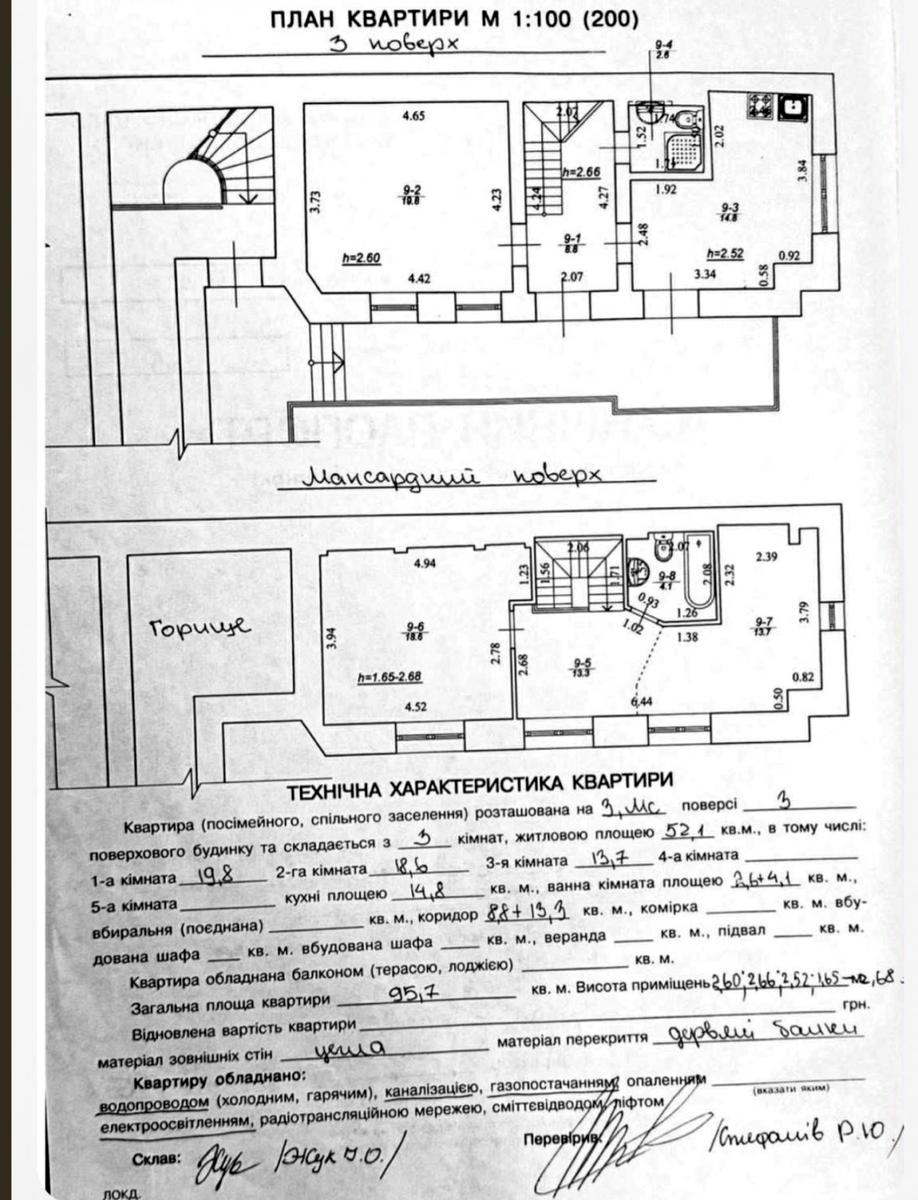 ПЛАН КВАРТИРИ М 1:100 (200)
3 поверх
9-4
2.6
4.65
2.07
1.74
1.52
2.02
h=2.66
3.73
9-2
19.8
4.23
4.24
4.27
1.92
9-3
14.8
3.84
2.48
h=2.60
9-1
8.8
h=2.52
0.92
4.42
2.07
3.34
0.58
Мансардний поверх
4.94
1.23
1.56
2.06
1.71
2.07
9-8
4.1
2.08
2.32
2.39
Горище
3.94
9-6
18.6
0.93
1.26
1.02
1.38
9-7
13.7
3.79
2.78
2.68
9-5
13.3
h=1.65-2.68
0.82
4.52
6.44
0.50
ТЕХНІЧНА ХАРАКТЕРИСТИКА КВАРТИРИ
Квартира (посімейного, спільного заселення) розташована на 3, Мс поверсі 3
поверхового будинку та складається з 3 кімнат, житловою площею 52,1 кв.м., в тому числі:
1-а кімната 19,8 2-га кімната 18,6 3-я кімната 13,7 4-а кімната
5-а кімната кухні площею 14,8 кв. м., ванна кімната площею 2,6+4,1 кв. м.,
вбиральня (поєднана) кв. м., коридор 8,8+13,3 кв. м., комірка кв. м. вбу-
дована шафа кв. м. вбудована шафа кв. м., веранда кв. м., підвал кв. м.
Квартира обладнана балконом (терасою, лоджією) кв. м.
Загальна площа квартири 95,7 кв. м. Висота приміщень 2,60; 2,66; 2,52; 1,65-2,68.
Відновлена вартість квартири грн.
матеріал зовнішніх стін цегла матеріал перекриття дерев'яні балки
Квартиру обладнано:
водопроводом (холодним, гарячим), каналізацією, газопостачанням, опаленням
(вказати яким)
електроосвітленням, радіотрансляційною мережею, сміттєвідводом, ліфтом
Склав: /Жук О.О./ Перевірив: /Стефанів Р.Ю./